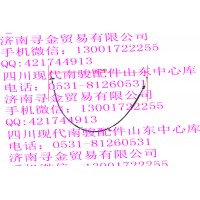 济南寻金贸易有限公司
手机微信：13001722255
QQ:421744913
四川现代南骏配件山东中心库
电话：0531-81260531
济南寻金贸易有限公司
手机微信：13001722255
QQ:421744913
四川现代南骏配件山东中心库
电话：0531-81260531
济南寻金贸易有限公司